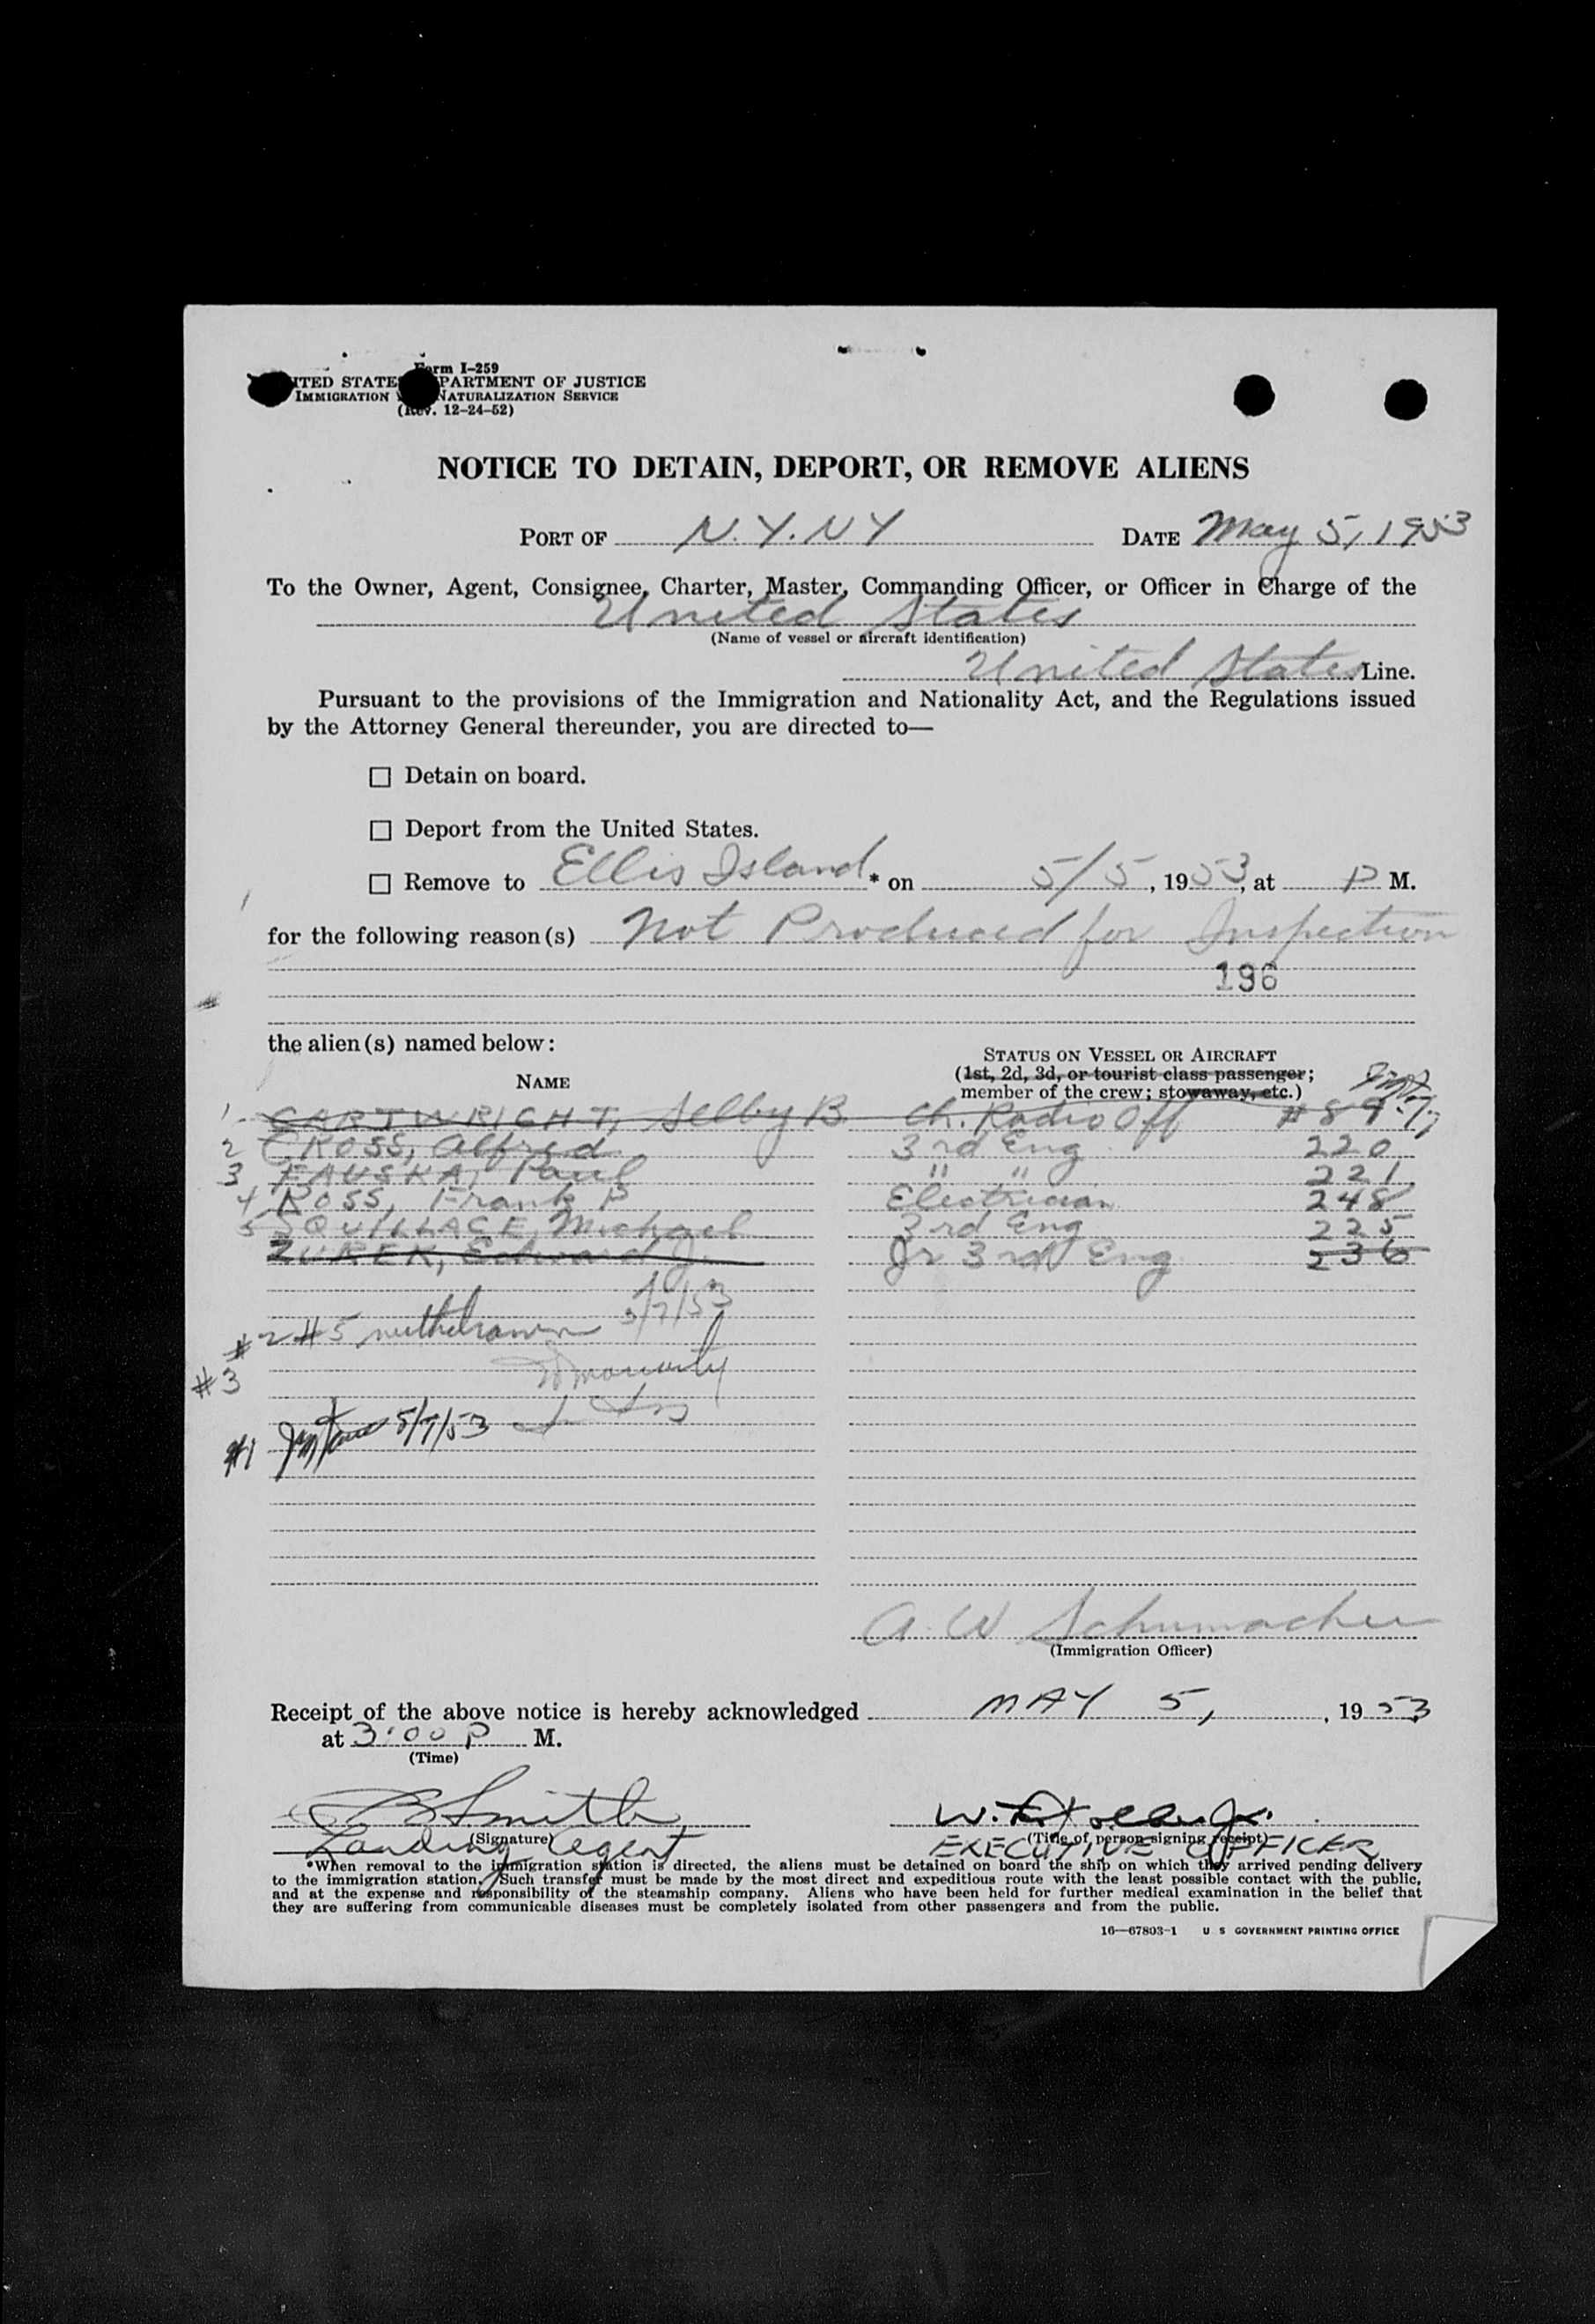 Form I-259
UNITED STATES DEPARTMENT OF JUSTICE
IMMIGRATION NATURALIZATION SERVICE
(Rev. 12-24-52)
NOTICE TO DETAIN, DEPORT, OR REMOVE ALIENS
PORT OF N.Y. NY DATE May 5, 1953
To the Owner, Agent, Consignee, Charter, Master, Commanding Officer, or Officer in Charge of the
United States
(Name of vessel or aircraft identification)
United States Line.
Pursuant to the provisions of the Immigration and Nationality Act, and the Regulations issued
by the Attorney General thereunder, you are directed to—
☐ Detain on board.
☐ Deport from the United States.
☐ Remove to Ellis Island * on 5/5, 1953, at P M.
for the following reason(s) Not Produced for Inspection
196
the alien(s) named below:
STATUS ON VESSEL OR AIRCRAFT
(1st, 2d, 3d, or tourist class passenger;
NAME
member of the crew; stowaway, etc.)
1 CARTWRIGHT, Selby B. Ch. Radio Off #89
2 CROSS, Alfred 3rd Eng 220
3 FAUSKA, Paul " " 221
4 ROSS, Frank P Electrician 248
5 SQUILLACE, Michael 3rd Eng 225
ZUREK, Edward J. Jr 3rd Eng 236
5/7/53
#2 #5 withdrawn
#3
#1 5/7/53
A. W Schumacher
(Immigration Officer)
Receipt of the above notice is hereby acknowledged MAY 5, , 1953
at 3:00 P M.
(Time)
Smith
(Signature)
Landing Agent
W.
(Title of person signing receipt)
EXECUTIVE OFFICER
*When removal to the immigration station is directed, the aliens must be detained on board the ship on which they arrived pending delivery
to the immigration station. Such transfer must be made by the most direct and expeditious route with the least possible contact with the public,
and at the expense and responsibility of the steamship company. Aliens who have been held for further medical examination in the belief that
they are suffering from communicable diseases must be completely isolated from other passengers and from the public.
16—67803-1 U S GOVERNMENT PRINTING OFFICE